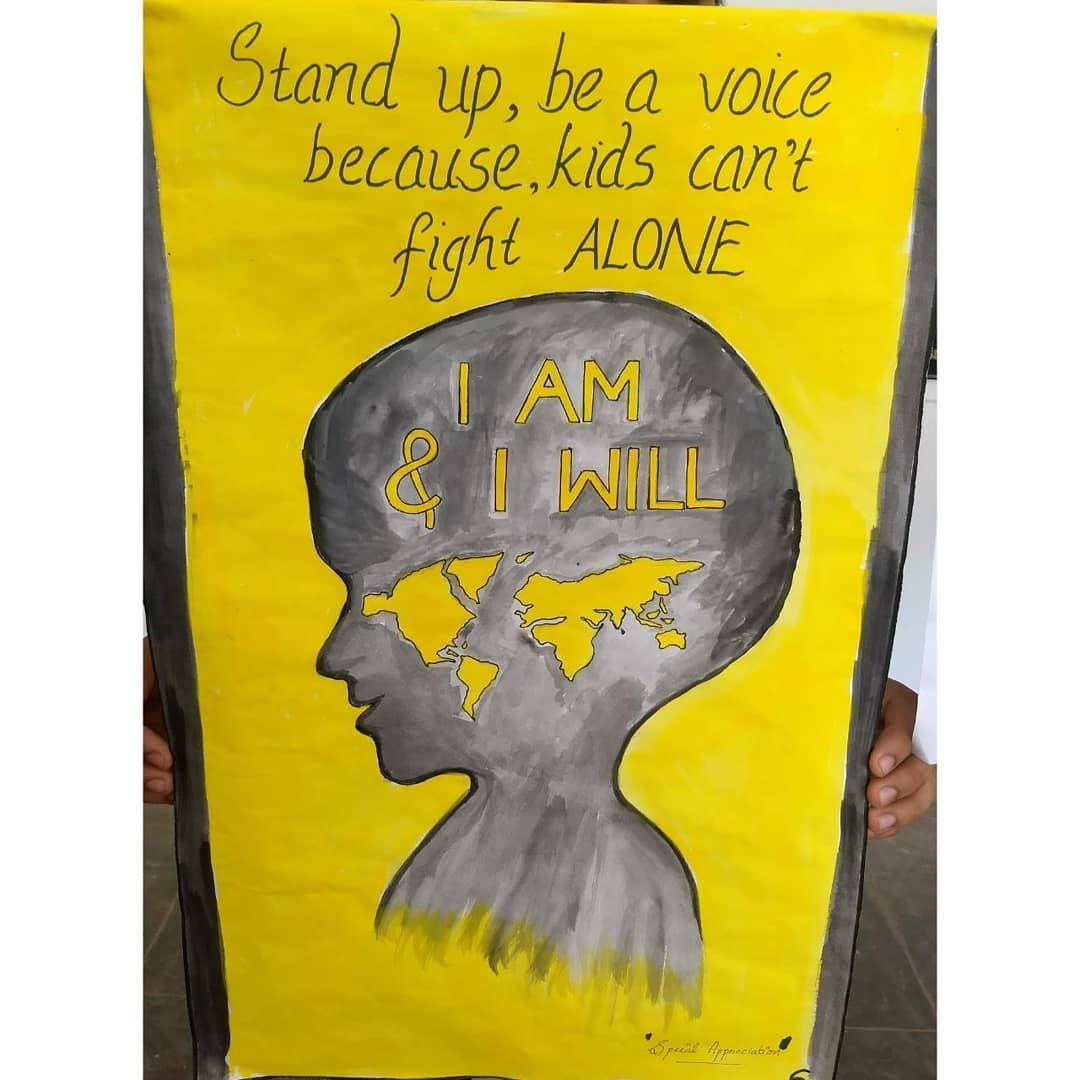 Stand up, be a voice
because, kids can't
fight ALONE
I AM
& I WILL
"Special Appreciation"